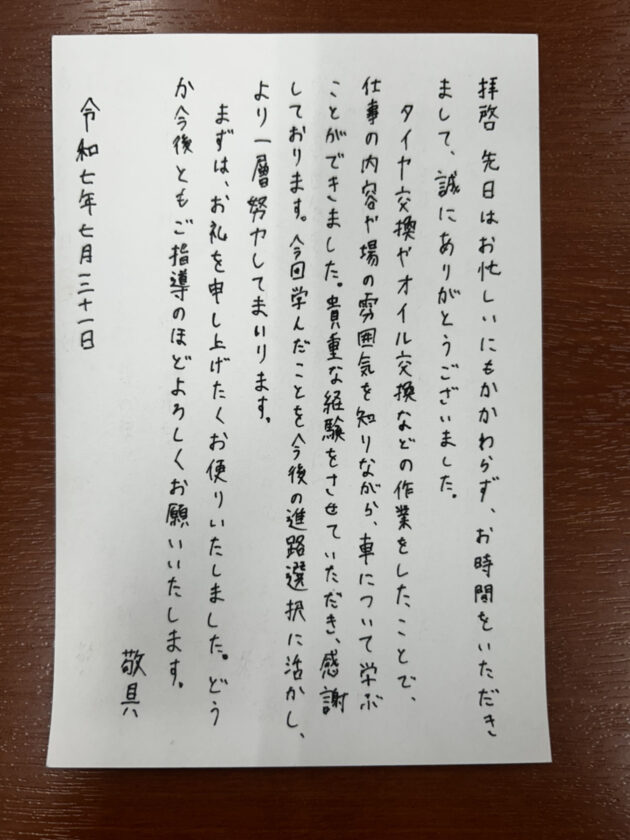 拝啓 先日はお忙しいにもかかわらず、お時間をいただき
まして、誠にありがとうございました。
タイヤ交換やオイル交換などの作業をしたことで、
仕事の内容や場の雰囲気を知りながら、車について学ぶ
ことができました。貴重な経験をさせていただき、感謝
しております。今回学んだことを今後の進路選択に活かし、
より一層努力してまいります。
まずは、お礼を申し上げたくお便りいたしました。どう
か今後ともご指導のほどよろしくお願いいたします。
敬具
令和七年七月三十一日